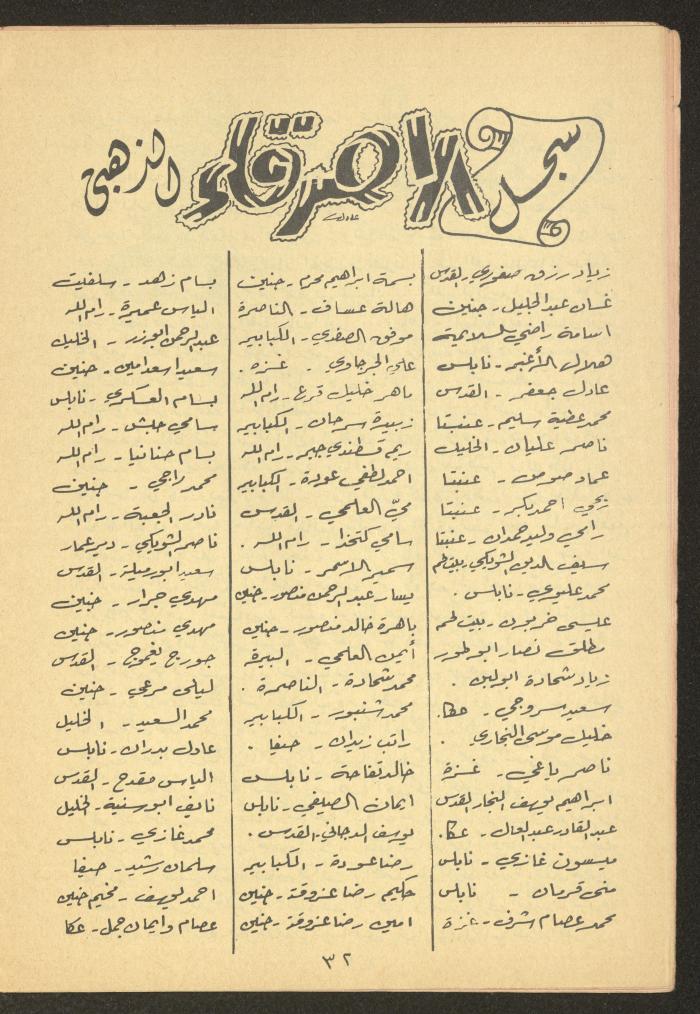 سجل الاصدقاء الذهبي
زياد رزق صفوري - القدس
غسان عبد الجليل - جنين
اسامة راضي السلايمة
هلال الأغبر - نابلس
عادل جعفر - القدس
محمد عطية سليم - عنبتا
ناصر عليان - الخليل
عماد صوص - عنبتا
يحيى احمد بكر - عنبتا
رامي وليد حمدان - عنبتا
سيف الدين الشويكي بيت لحم
محمد عليوي - نابلس .
عيسى خربون - بيت لحم
مطلق نصار ابو طور
زياد شحادة ابولبن .
سعيد سروجي - عكا.
خليل موسى النجاري .
ناصر ياغي - غزة
ابراهيم يوسف النجار القدس
عبد القادر عبد العال - عكا.
ميسون غازي - نابلس
منى قرمان - نابلس
محمد عصام شرف - غزة
بسمة ابراهيم محرم - جنين
هالة عساف - الناصرة
موفق الصفدي - الكبابير
علي الجرجاوي - غزه .
ماهر خليل قرع - رام الله
زبيدة سرحان - الكبابير
ريم قسطندي جبر - رام الله
احمد لطفي عودة - الكبابير
ميّ العلمي - القدس
سامي كتخدا - رام الله .
سمير الاسمر - نابلس
يسار عبد الرحمن منصور - جنين
باهرة خالد منصور - جنين
أيمن العلمي - البيرة
محمد شحادة - الناصرة .
محمد شنبور - الكبابير
راتب زيدان - حيفا .
خالد تفاحة - نابلس
ايمان الصيفي - نابلس
يوسف الدجاني - القدس .
رضا عودة - الكبابير
حكيم رضا عزوقة - جنين
امين رضا عزوقة - جنين
بسام زهد - سلفيت
الياس عميرة - رام الله
عبد الرحمن ابو زر - الخليل
سعيد اسعد امين - جنين
بسام العسكري - نابلس
سامي حلش - رام الله
بسام حنانيا - رام الله
محمد راجي - جنين
نادر الجعبة - رام الله
ناصر الشويكي - دير عمار
سعيد ابو رميلة - القدس
مهدي جرار - جنين
مهدي منصور - جنين
جورج يغموج - القدس
ليلى مرعي - جنين
محمد السعيد - الخليل
عادل بدران - نابلس
الياس مقدح - القدس
نايف ابو سنية - الخليل
محمد غازي - نابلس
سلمان رشيد - حيفا
احمد يوسف - مخيم جنين
عصام وايمان جمل - عكا
٣٢